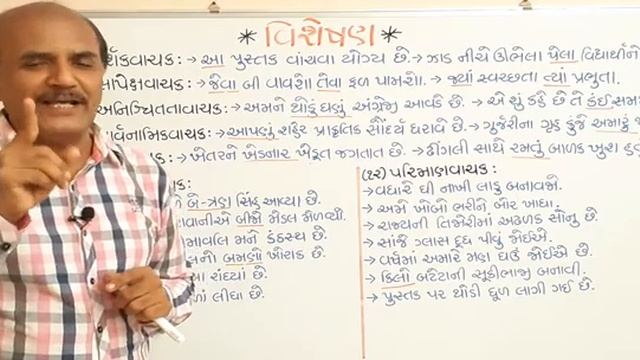 * વિશેષણ *
ર્શકવાચક : → આ પુસ્તક વાંચવા યોગ્ય છે. → ઝાડ નીચે ઊભેલા પેલા વિદ્યાર્થીને
સાપેક્ષવાચક : → જેવા બી વાવશો તેવા ફળ પામશો. → જ્યાં સ્વચ્છતા ત્યાં પ્રભુતા.
અનિશ્ચિતતાવાચક : → અમને થોડું ઘણું અંગ્રેજી આવડે છે. → એ શું કહે છે તે કંઈ સમ
ાર્વનામિકવાચક : → આપણું શહેર પ્રાકૃતિક સૌંદર્ય ધરાવે છે. → ગુર્જરીના ગૃહ કુંજે અમારું
ક : → ખેતરને ખેડનાર ખેડૂત જગતાત છે. → ઢીંગલી સાથે રમતું બાળક ખુશ હતું
ક :
બે-ત્રણ સિંહ આવ્યા છે.
વાનીએ બીજો મેડલ મેળવ્યો.
માવલિ મને કંઠસ્થ છે.
નો બમણો ખોરાક છે.
સા રાંધ્યાં છે.
ાં લીધા છે.
(૧૨) પરિમાણવાચક :
→ વધારે ઘી નાખી લાડુ બનાવજો.
→ અમે ખોબો ભરીને બોર ખાધા.
→ રાજ્યની તિજોરીમાં અઢળક સોનુ છે.
→ સાંજે ગ્લાસ દૂધ પીવું જોઈએ.
→ વર્ષમાં અમારે મણ ઘઉં જોઈએ છે.
→ કિલો બટેટાની સૂકીભાજી બનાવી.
→ પુસ્તક પર થોડી ધૂળ લાગી ગઈ છે.